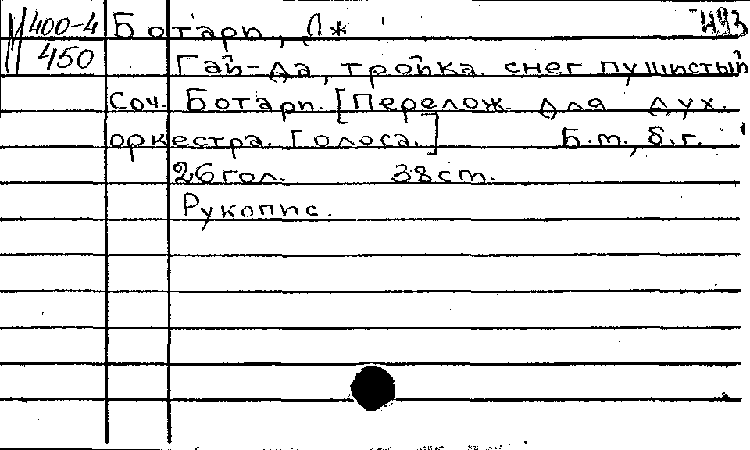 400-4 Ботари, Дж 493
450 Гай-да, тройка снег пушистый
Соч. Ботари. [Перелож. для дух.
оркестра. Голоса.] Б.м., б.г.
26 гол. 38 см.
Рукопис.